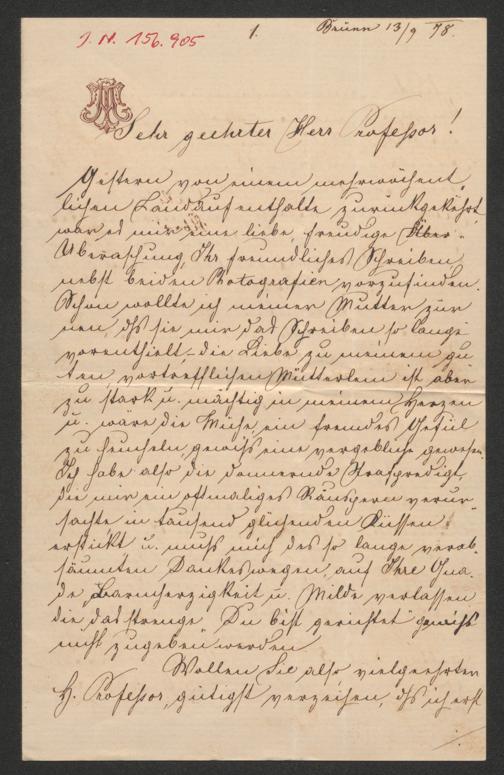 J. N. 156.905
1.
Brünn 13/9 78.
Sehr geehrter Herr Professor!
Gestern von einem mehrwöchent
lichen Landaufenthalte zurückgekehrt,
war es mir eine liebe, freudige Über-
Überaschung, Ihr freundliches Schreiben
nebst beiden Photografien vorzufinden.
Schon wollte ich meiner Mutter zür
nen, dß sie mir das Schreiben so lange
vorenthielt – die Liebe zu meinem gu
ten, vortrefflichen Mütterlein ist aber
zu stark u. mächtig in meinem Herzen
u. wäre die Mühe, ein fremdes Gefül
zu heucheln, gewiss eine vergebliche gewesen.
Ich habe also die donnernde Strafpredigt,
die mir ein oftmaliges Räuspern verur-
sachte in tausend glühenden Küssen
erstickt, u. muss mich des so lange verab
säumten Dankes wegen, auf Ihre Gna
de, Barmherzigkeit u. Milde verlassen
die das strenge "Du bist gerichtet" gewiss
nicht zugeben werden
Wollen Sie also, vielgeehrter
H. Professor, gütigst verzeihen, dß ich erst